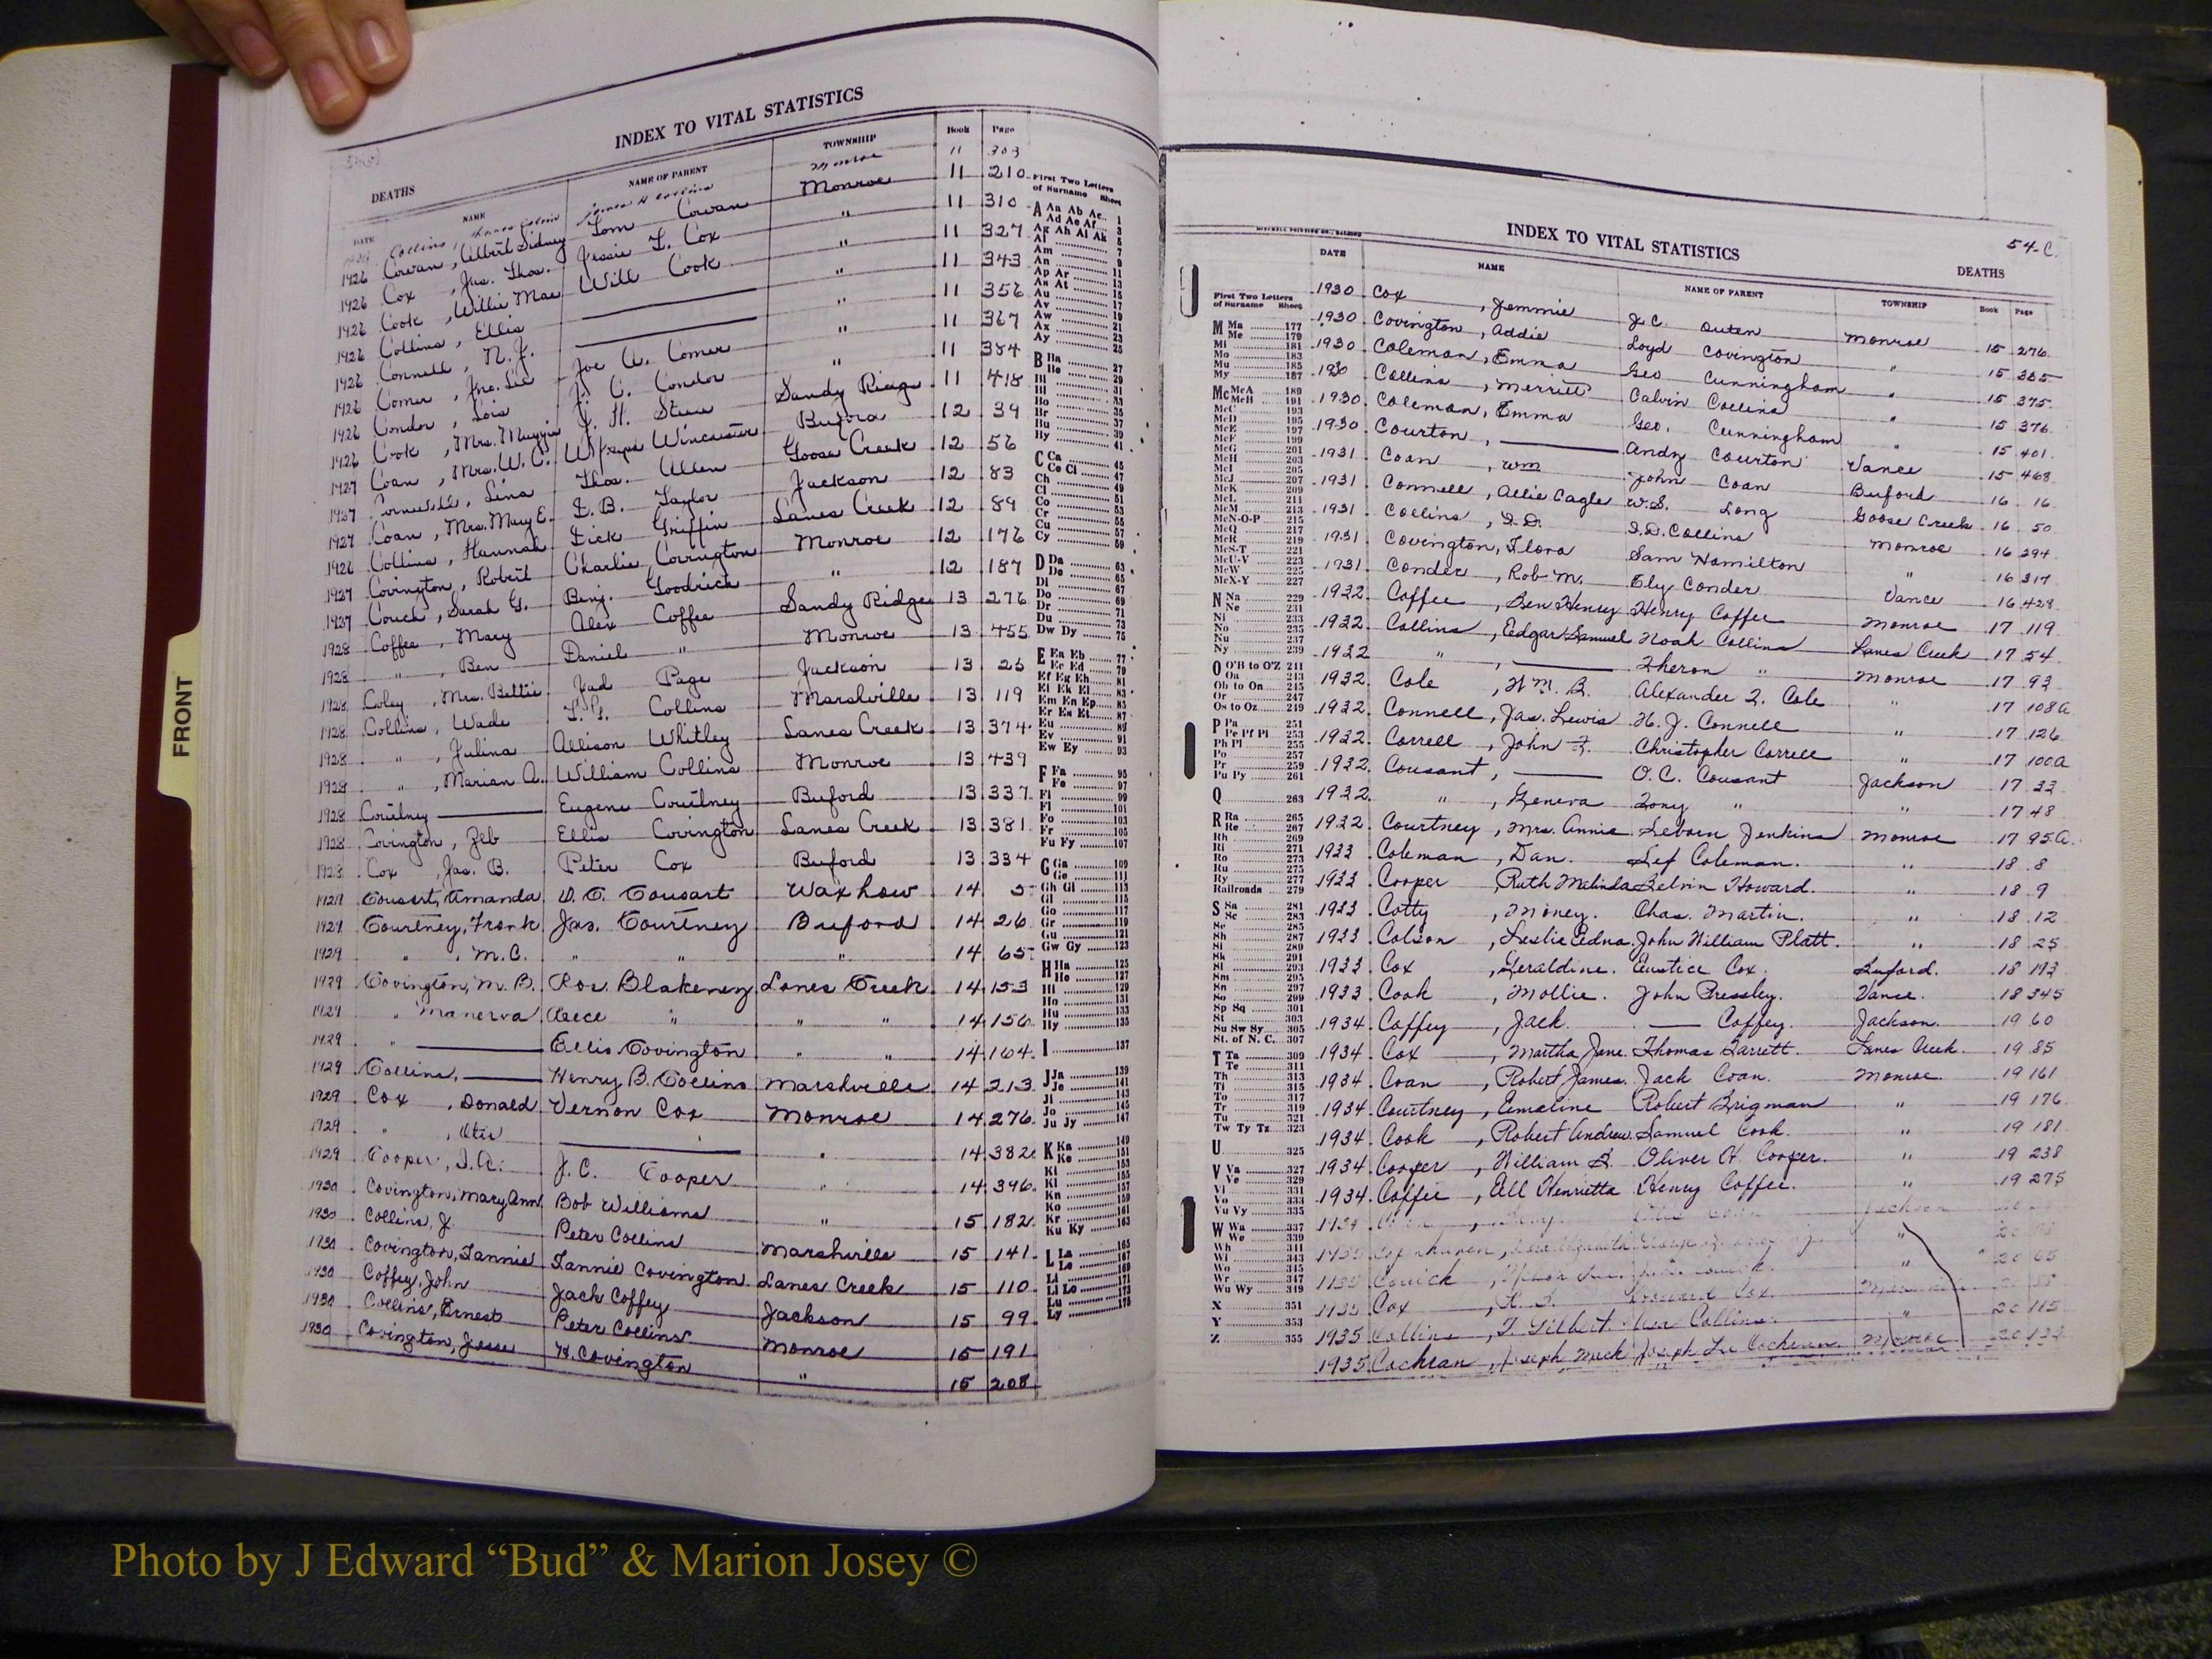 INDEX TO VITAL STATISTICS
DEATHS
DATE NAME NAME OF PARENT TOWNSHIP Book Page
Collins, James H Collins Monroe 11 303
1926 Cowan, Albert Sidney Tom Cowan Monroe 11 210
1926 Cox, Jas. Thos. Jessie L. Cox " 11 310
1926 Cook, Willie Mae Will Cook " 11 327
1926 Collins, Ellis " 11 343
1926 Connell, N. J. " 11 356
1926 Comer, Jno. Lee Joe A. Comer " 11 367
1926 Condor, Lois J. C. Condor " 11 384
1926 Cook, Mrs. Maggie Y. H. Sandy Ridge 11 418
1927 Coan, Mrs. W. C. Winchester Buford 12 39
1927 Lina Thos. Allen Goose Creek 12 56
1927 Coan, Mrs. Mary E. L. B. Taylor Jackson 12 83
1926 Collins, Hannah Dick Griffin Lanes Creek 12 89
1927 Covington, Robert Charlie Covington Monroe 12 176
1927 Couch, Sarah G. Benj. Goodrich " 12 187
1928 Coffee, Mary Alex Coffee Sandy Ridge 13 276
1928 " , Ben Daniel " Monroe 13 455
1928 Coley, Mrs. Bettie Jud Page Jackson 13 25
1928 Collins, Wade Collins Marshville 13 119
1928 " , Julina Allison Whitley Lanes Creek 13 374
1928 " , Marian A. William Collins Monroe 13 439
1928 Courtney Eugene Courtney Buford 13 337
1928 Covington, Zeb Ellis Covington Lanes Creek 13 381
1928 Cox, Jas. B. Peter Cox Buford 13 334
1929 Cousart, Amanda Cousart Waxhaw 14 5
1929 Courtney, Frank Jas. Courtney Buford 14 26
1929 " , M.C. " " " 14 65
1929 Covington, M. B. Ros. Blakeney Lanes Creek 14 153
1929 " Manerva Reece " " " 14 156
1929 " Ellis Covington " " 14 164
1929 Collins, Henry B. Collins Marshville 14 213
1929 Cox, Donald Vernon Cox Monroe 14 276
1929 " , Otis " 14 382
1929 Cooper, J. C. Cooper " 14 396
1930 Covington, Mary Ann Bob Williams " 15 182
1930 Collins, J. Peter Collins Marshville 15 141
1930 Covington, Fannie Fannie Covington Lanes Creek 15 110
1930 Coffey, John Jack Coffey Jackson 15 99
1930 Collins, Ernest Peter Collins Monroe 15 191
1930 Covington, Jesse H. Covington " 15 208
First Two Letters
of Surname Sheet
A Aa Ab Ac 1
Ad Ae Af 3
Ag Ah Ai Ak 5
Al 7
Am 9
An 11
Ap Ar 13
As At 15
Au 17
Av 19
Aw 21
Ax 23
Ay 25
B Ba 27
Be 29
Bi 31
Bl 33
Bo 35
Br 37
Bu 39
By 41
C Ca 45
Ce Ci
Ch 47
Cl 49
Co 51
Cr 55
Cu 57
Cy 59
D Da 63
De 65
Di 67
Do 69
Dr 71
Du 73
Dw Dy 75
E Ea Eb 77
Ec Ed 79
Ef Eg Eh 81
Ei Ek El 83
Em En Ep 85
Er Es Et 87
Eu 89
Ev 91
Ew Ey 93
F Fa 95
Fe 97
Fi 99
Fl 101
Fo 103
Fr 105
Fu Fy 107
G Ga 109
Ge 111
Gh Gi 113
Gl 115
Go 117
Gr 119
Gu 121
Gw Gy 123
H Ha 125
He 127
Hi 129
Ho 131
Hu 133
Hy 135
I 137
J Ja 139
Je 141
Ji 143
Jo 145
Ju Jy 147
K Ka 149
Ke 151
Ki 153
Kl 155
Kn 157
Ko 159
Kr 161
Ku Ky 163
L La 165
Le 167
Li 171
Ll Lo 173
Lu
Ly 175
FRONT
54-C
MITCHELL PRINTING CO., RALEIGH
INDEX TO VITAL STATISTICS
DEATHS
DATE NAME NAME OF PARENT TOWNSHIP Book Page
1930 Cox, Jemmie J. C. Outen Monroe 15 276
1930 Covington, Addie Loyd Covington " 15 365
1930 Coleman, Emma Geo Cunningham " 15 375
1930 Collins, Merritt Calvin Collins " 15 376
1930 Coleman, Emma Geo. Cunningham " 15 401
1930 Courton, Andy Courton Vance 15 468
1931 Coan, Wm John Coan Buford 16 16
1931 Connell, Allie Cagle W.S. Long Goose Creek 16 50
1931 Collins, I.D. I.D. Collins Monroe 16 294
1931 Covington, Flora Sam Hamilton " 16 317
1931 Conder, Rob. M. Ely Conder Vance 16 428
1932 Coffee, Ben Henry Henry Coffee Monroe 17 119
1932 Collins, Edgar Samuel Noah Collins Lanes Creek 17 54
1932 " , Theron " Monroe 17 93
1932 Cole, Wm. R. Alexander Q. Cole " 17 108a
1932 Connell, Jas. Lewis H. J. Connell " 17 126
1932 Correll, John F. Christopher Correll " 17 100a
1932 Cousart, O.C. Cousart Jackson 17 33
1932 " , Geneva Tony " " 17 48
1932 Courtney, Mrs. Annie Jenkins Monroe 17 95a
1933 Coleman, Dan. Sef Coleman. " 18 8
1933 Cooper, Ruth Malinda Kelvin Howard. " 18 9
1933 Cotty, Miney. Chas. Martin. " 18 12
1933 Colson, Leslie Edna. John William Platt. " 18 25
1933 Cox, Geraldine. Eustice Cox. Buford. 18 193
1933 Cook, Mollie. John Pressley. Vance. 18 345
1934 Coffey, Jack. Coffey. Jackson. 19 60
1934 Cox, Martha Jane. Thomas Garrett. Lanes Creek. 19 85
1934 Coan, Robert James. Jack Coan. Monroe. 19 161
1934 Courtney, Emaline Robert Brigman " 19 176
1934 Cook, Robert Andrew. Samuel Cook. " 19 181
1934 Cooper, William S. Oliver H. Cooper. " 19 238
1934 Coffie, Ell Henrietta Henry Coffee. " 19 275
1934 Jackson
1935 "
1935 Cowick " 20 65
1935 Cox, Cox.
1935 Collins, T. Gilbert. Collins. " 20 115
1935 Cochran, Joseph Mack Joseph Lee Cochran. Monroe
First Two Letters
of Surname Sheet
M Ma 177
Me 179
Mi 181
Mo 183
Mu 185
My 187
Mc McA 189
McB 191
McC 193
McD 195
McE 197
McF 199
McG 201
McH 203
McI 205
McJ 207
McK 209
McL 211
McM 213
McN-O-P 215
McQ 217
McR 219
McS-T 221
McU-V 223
McW 225
McX-Y 227
N Na 229
Ne 231
Ni 233
No 235
Nu 237
Ny 239
O O'B to O'Z 241
Oa 243
Ob to On 245
Or 247
Os to Oz 249
P Pa 251
Pe Pf Pi 253
Ph Pl 255
Po 257
Pr 259
Pu Py 261
Q 263
R Ra 265
Re 267
Rh 269
Ri 271
Ro 273
Ru 275
Ry 277
Railroads 279
S Sa 281
Sc 283
Se 285
Sh 287
Si 289
Sk 291
Sl 293
Sm 295
Sn 297
So 299
Sp Sq 301
St 303
Su Sw Sy 305
St. of N. C. 307
T Ta 309
Te 311
Th 313
Ti 315
To 317
Tr 319
Tu 321
Tw Ty Tz 323
U 325
V Va 327
Ve 329
Vi 331
Vo 333
Vu Vy 335
W Wa 337
We 339
Wh 341
Wi 343
Wo 345
Wr 347
Wu Wy 349
X 351
Y 353
Z 355
Photo by J Edward “Bud” & Marion Josey ©